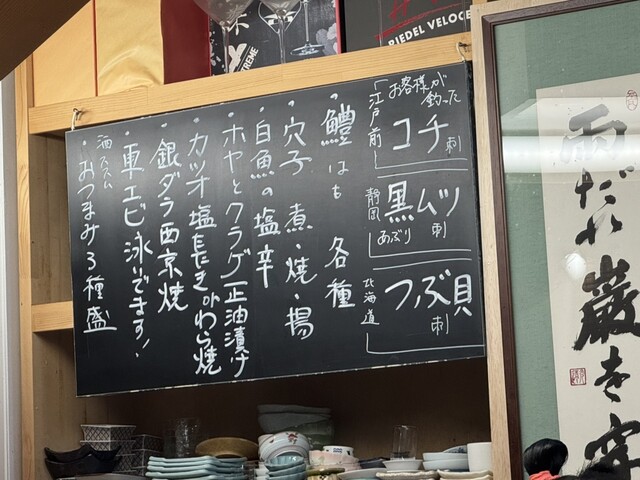 お客様が
釣った
「江戸前
コチ刺
静岡
黒ムツ
あぶり
刺
北海道
つぶ貝
刺
・鱧はも 各種
・穴子 煮・焼・揚
・白魚の塩辛
・ホヤとクラゲ正油漬け
・カツオ塩たたきorわら焼
・銀ダラ西京焼
・車エビ泳いでます!
酒ススム
・おつまみ3種盛
XTREME
RIEDEL VELOCE
雨だれ
巌を穿